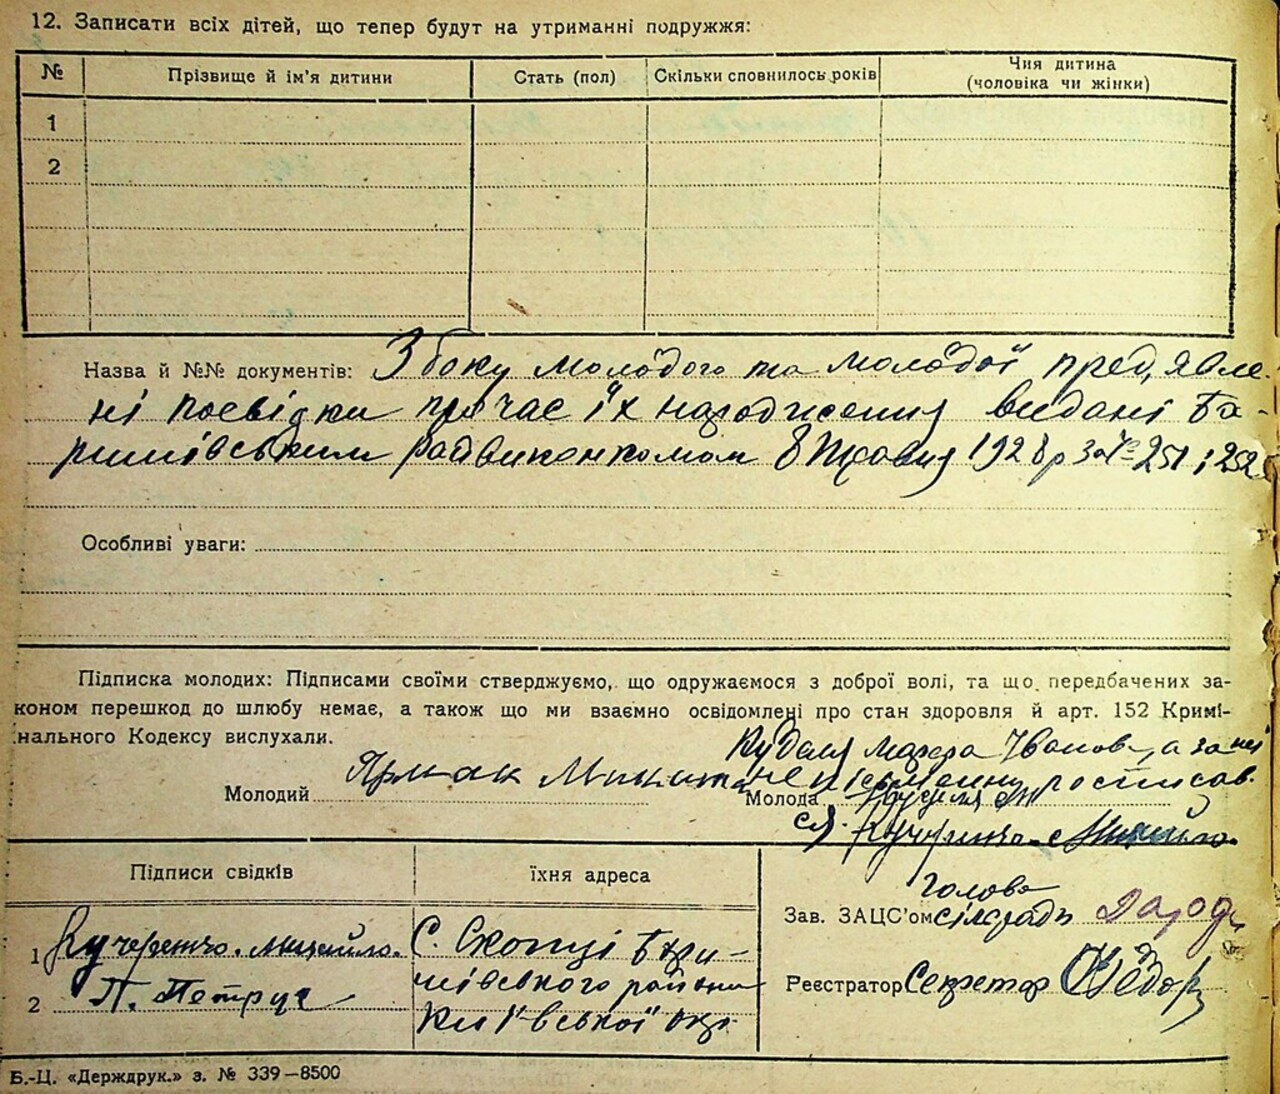 12. Записати всіх дітей, що тепер будут на утриманні подружжя:
№ Прізвище й ім'я дитини Стать (пол) Скільки сповнилось років Чия дитина
(чоловіка чи жінки)
1
2
Назва й №№ документів: З боку молодого та молодої пред,явле-
ні посвідки про час їх народження видані Ба-
ришівським райвиконкомом 8 травня 1928 р за № 251 і 252
Особливі уваги:
Підписка молодих: Підписами своїми стверджуємо, що одружаємося з доброї волі, та що передбачених за-
коном перешкод до шлюбу немає, а також що ми взаємно освідомлені про стан здоровля й арт. 152 Кримі-
нального Кодексу вислухали.
Іванов, а за неї
Молодий Ярмак Микита
неписьменну росписав
Молода
ся Кучеренко Михайло
Підписи свідків їхня адреса
Голова
Зав. ЗАЦС'ом сільради
1 Кучеренко Михайло. С. Скопці Бари-
шівського району
2 П. Петрус
Київської окр.
Реєстратор Секретар
Б.-Ц. «Держдрук.» з. № 339—8500